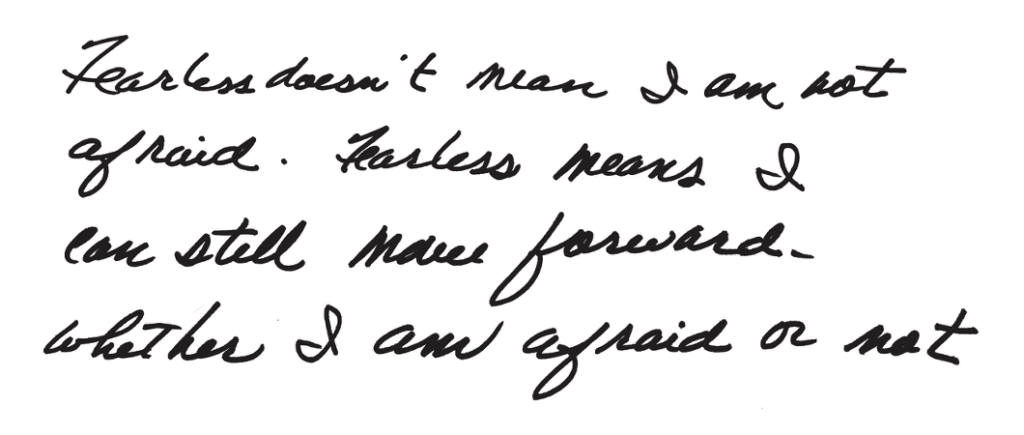 Fearless doesn't mean I am not
afraid. Fearless means I
can still move forward-
whether I am afraid or not